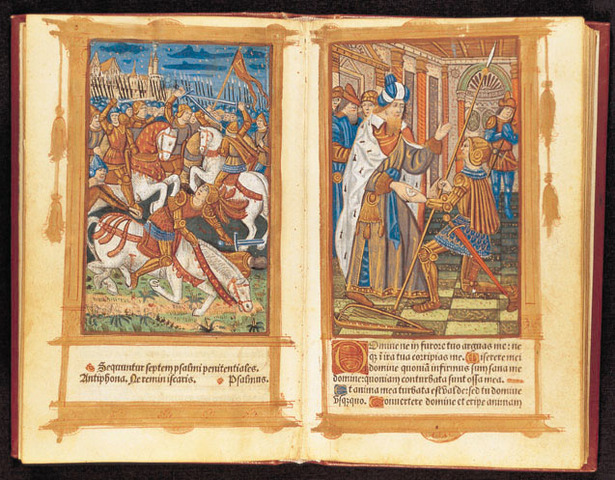 Sequuntur septem psalmi penitentiales.
Antiphona. Ne reminiscaris. Psalmus.
Domine ne in furore tuo arguas me: ne
q̃ ĩ ira tua corripias me. Miserere mei
domine quoniã infirmus sum sana me
domine: quoniam conturbata sunt ossa mea.
Et anima mea turbata est valde: sed tu domine
vsq̃quo. Convertere domine et eripe animam